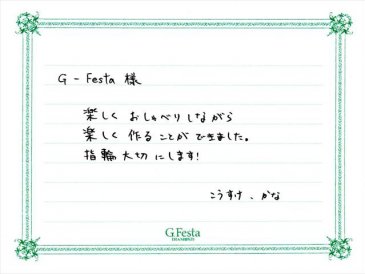 G - Festa 様
楽しく おしゃべりしながら
楽しく 作ることができました。
指輪大切にします!
こうすけ、かな
G.Festa